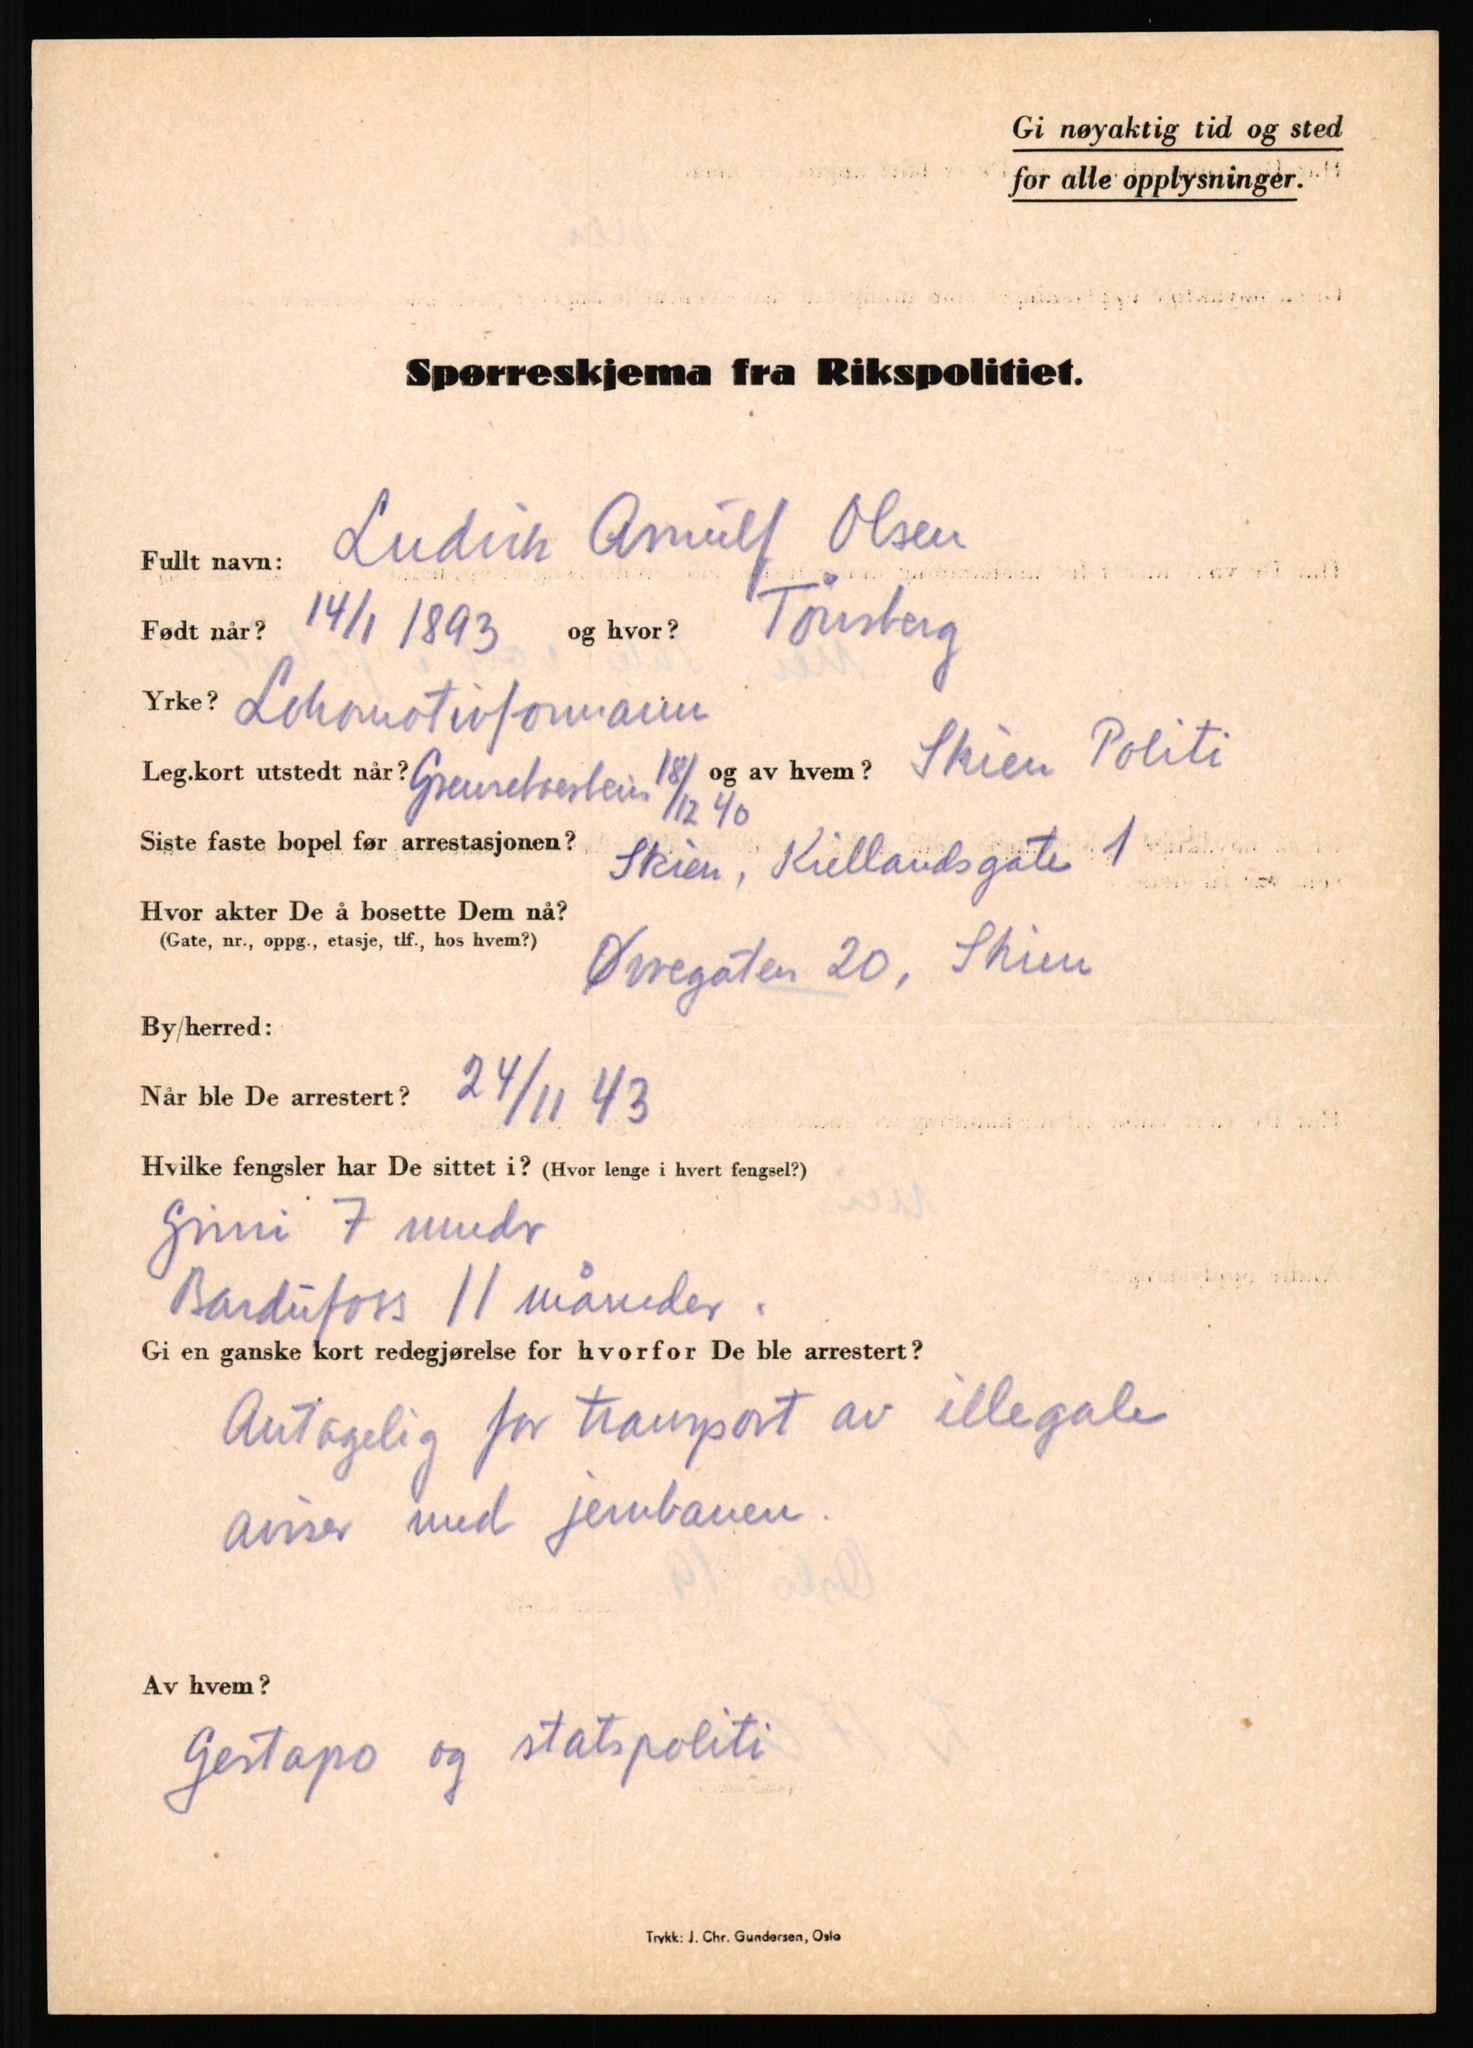 Gi nøyaktig tid og sted
for alle opplysninger.
Spørreskjema fra Rikspolitiet.
Fullt navn: Ludvik Arnulf Olsen
Født når? 14/1 1893 og hvor? Tönsberg
Yrke? Lokomotivformann
Leg.kort utstedt når? Grenseboerbevis 18/12 40 og av hvem? Skien Politi
Siste faste bopel før arrestasjonen? Skien, Kiellandsgate 1
Hvor akter De å bosette Dem nå?
(Gate, nr., oppg., etasje, tlf., hos hvem?) Øvregaten 20, Skien
By/herred:
Når ble De arrestert? 24/11 43
Hvilke fengsler har De sittet i? (Hvor lenge i hvert fengsel?)
Grini 7 mndr
Bardufoss 11 måneder.
Gi en ganske kort redegjørelse for hvorfor De ble arrestert?
Antagelig for transport av illegale
aviser med jernbanen.
Av hvem?
Gestapo og statspoliti
Trykk: J. Chr. Gundersen, Oslo